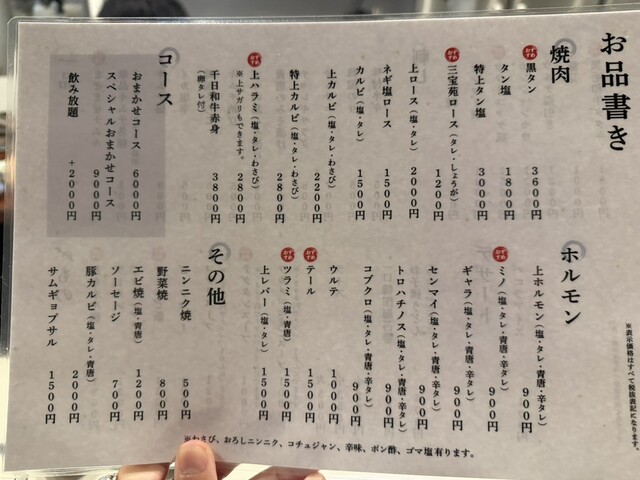 お品書き
焼肉
おすすめ
黒タン 3600円
タン塩 1800円
特上タン塩 3000円
おすすめ
三宝苑ロース(タレ・しょうが) 1200円
上ロース(塩・タレ) 2000円
ネギ塩ロース 1500円
カルビ(塩・タレ) 1500円
上カルビ(塩・タレ・わさび) 2200円
特上カルビ(塩・タレ・わさび) 2800円
おすすめ
上ハラミ(塩・タレ・わさび) 2800円
※上サガリもできます。
千日和牛赤身 3800円
(卵タレ付)
コース
おまかせコース 6000円
スペシャルおまかせコース 9000円
飲み放題 +2000円
ホルモン
上ホルモン(塩・タレ・青唐・辛タレ) 900円
おすすめ
ミノ(塩・タレ・青唐・辛タレ) 900円
ギャラ(塩・タレ・青唐・辛タレ) 900円
センマイ(塩・タレ・青唐・辛タレ) 900円
トロハチノス(塩・タレ・青唐・辛タレ) 900円
コブクロ(塩・タレ・青唐・辛タレ) 900円
ウルテ 1000円
おすすめ
テール 1500円
おすすめ
ツラミ(塩・青唐) 1500円
上レバー(塩・タレ) 1500円
その他
ニンニク焼 500円
野菜焼 800円
エビ焼(塩・青唐) 1200円
ソーセージ 700円
豚カルビ(塩・タレ・青唐) 2000円
サムギョプサル 1500円
※表示価格はすべて税抜表記になります。
※わさび、おろしニンニク、コチュジャン、辛味、ポン酢、ゴマ塩有ります。